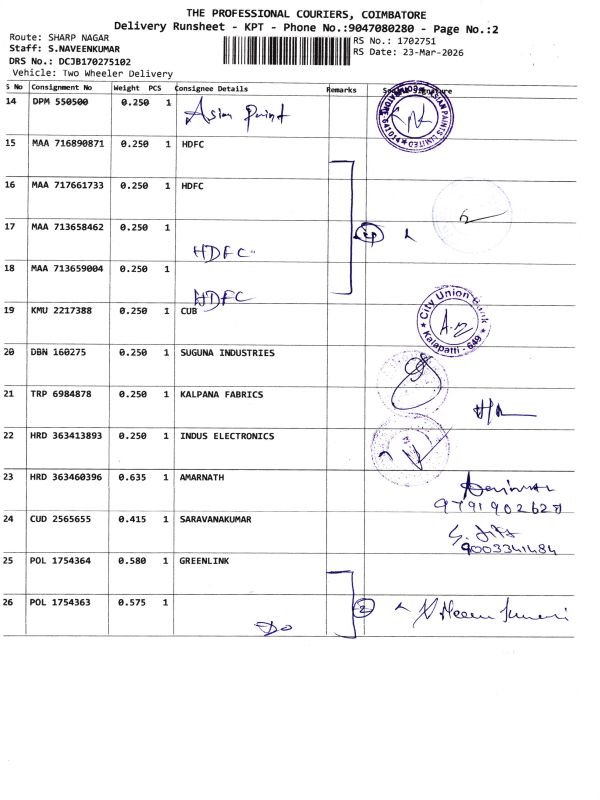 THE PROFESSIONAL COURIERS, COIMBATORE
Delivery Runsheet - KPT - Phone No.:9047080280 - Page No.:2
Route: SHARP NAGAR
RS No.: 1702751
Staff: S.NAVEENKUMAR
RS Date: 23-Mar-2026
DRS No.: DCJB170275102
Vehicle: Two Wheeler Delivery
S No Consignment No Weight PCS Consignee Details Remarks
14 DPM 550500 0.250 1 Asian Paint
ASIAN PAINTS LIMITED 641014
15 MAA 716890871 0.250 1 HDFC
16 MAA 717661733 0.250 1 HDFC
17 MAA 713658462 0.250 1 HDFC
18 MAA 713659004 0.250 1 HDFC
19 KMU 2217388 0.250 1 CUB
City Union Bank Kalapatti - 649
20 DBN 160275 0.250 1 SUGUNA INDUSTRIES
21 TRP 6984878 0.250 1 KALPANA FABRICS
22 HRD 363413893 0.250 1 INDUS ELECTRONICS
23 HRD 363460396 0.635 1 AMARNATH
24 CUD 2565655 0.415 1 SARAVANAKUMAR
9003341484
25 POL 1754364 0.580 1 GREENLINK
26 POL 1754363 0.575 1 Do 2